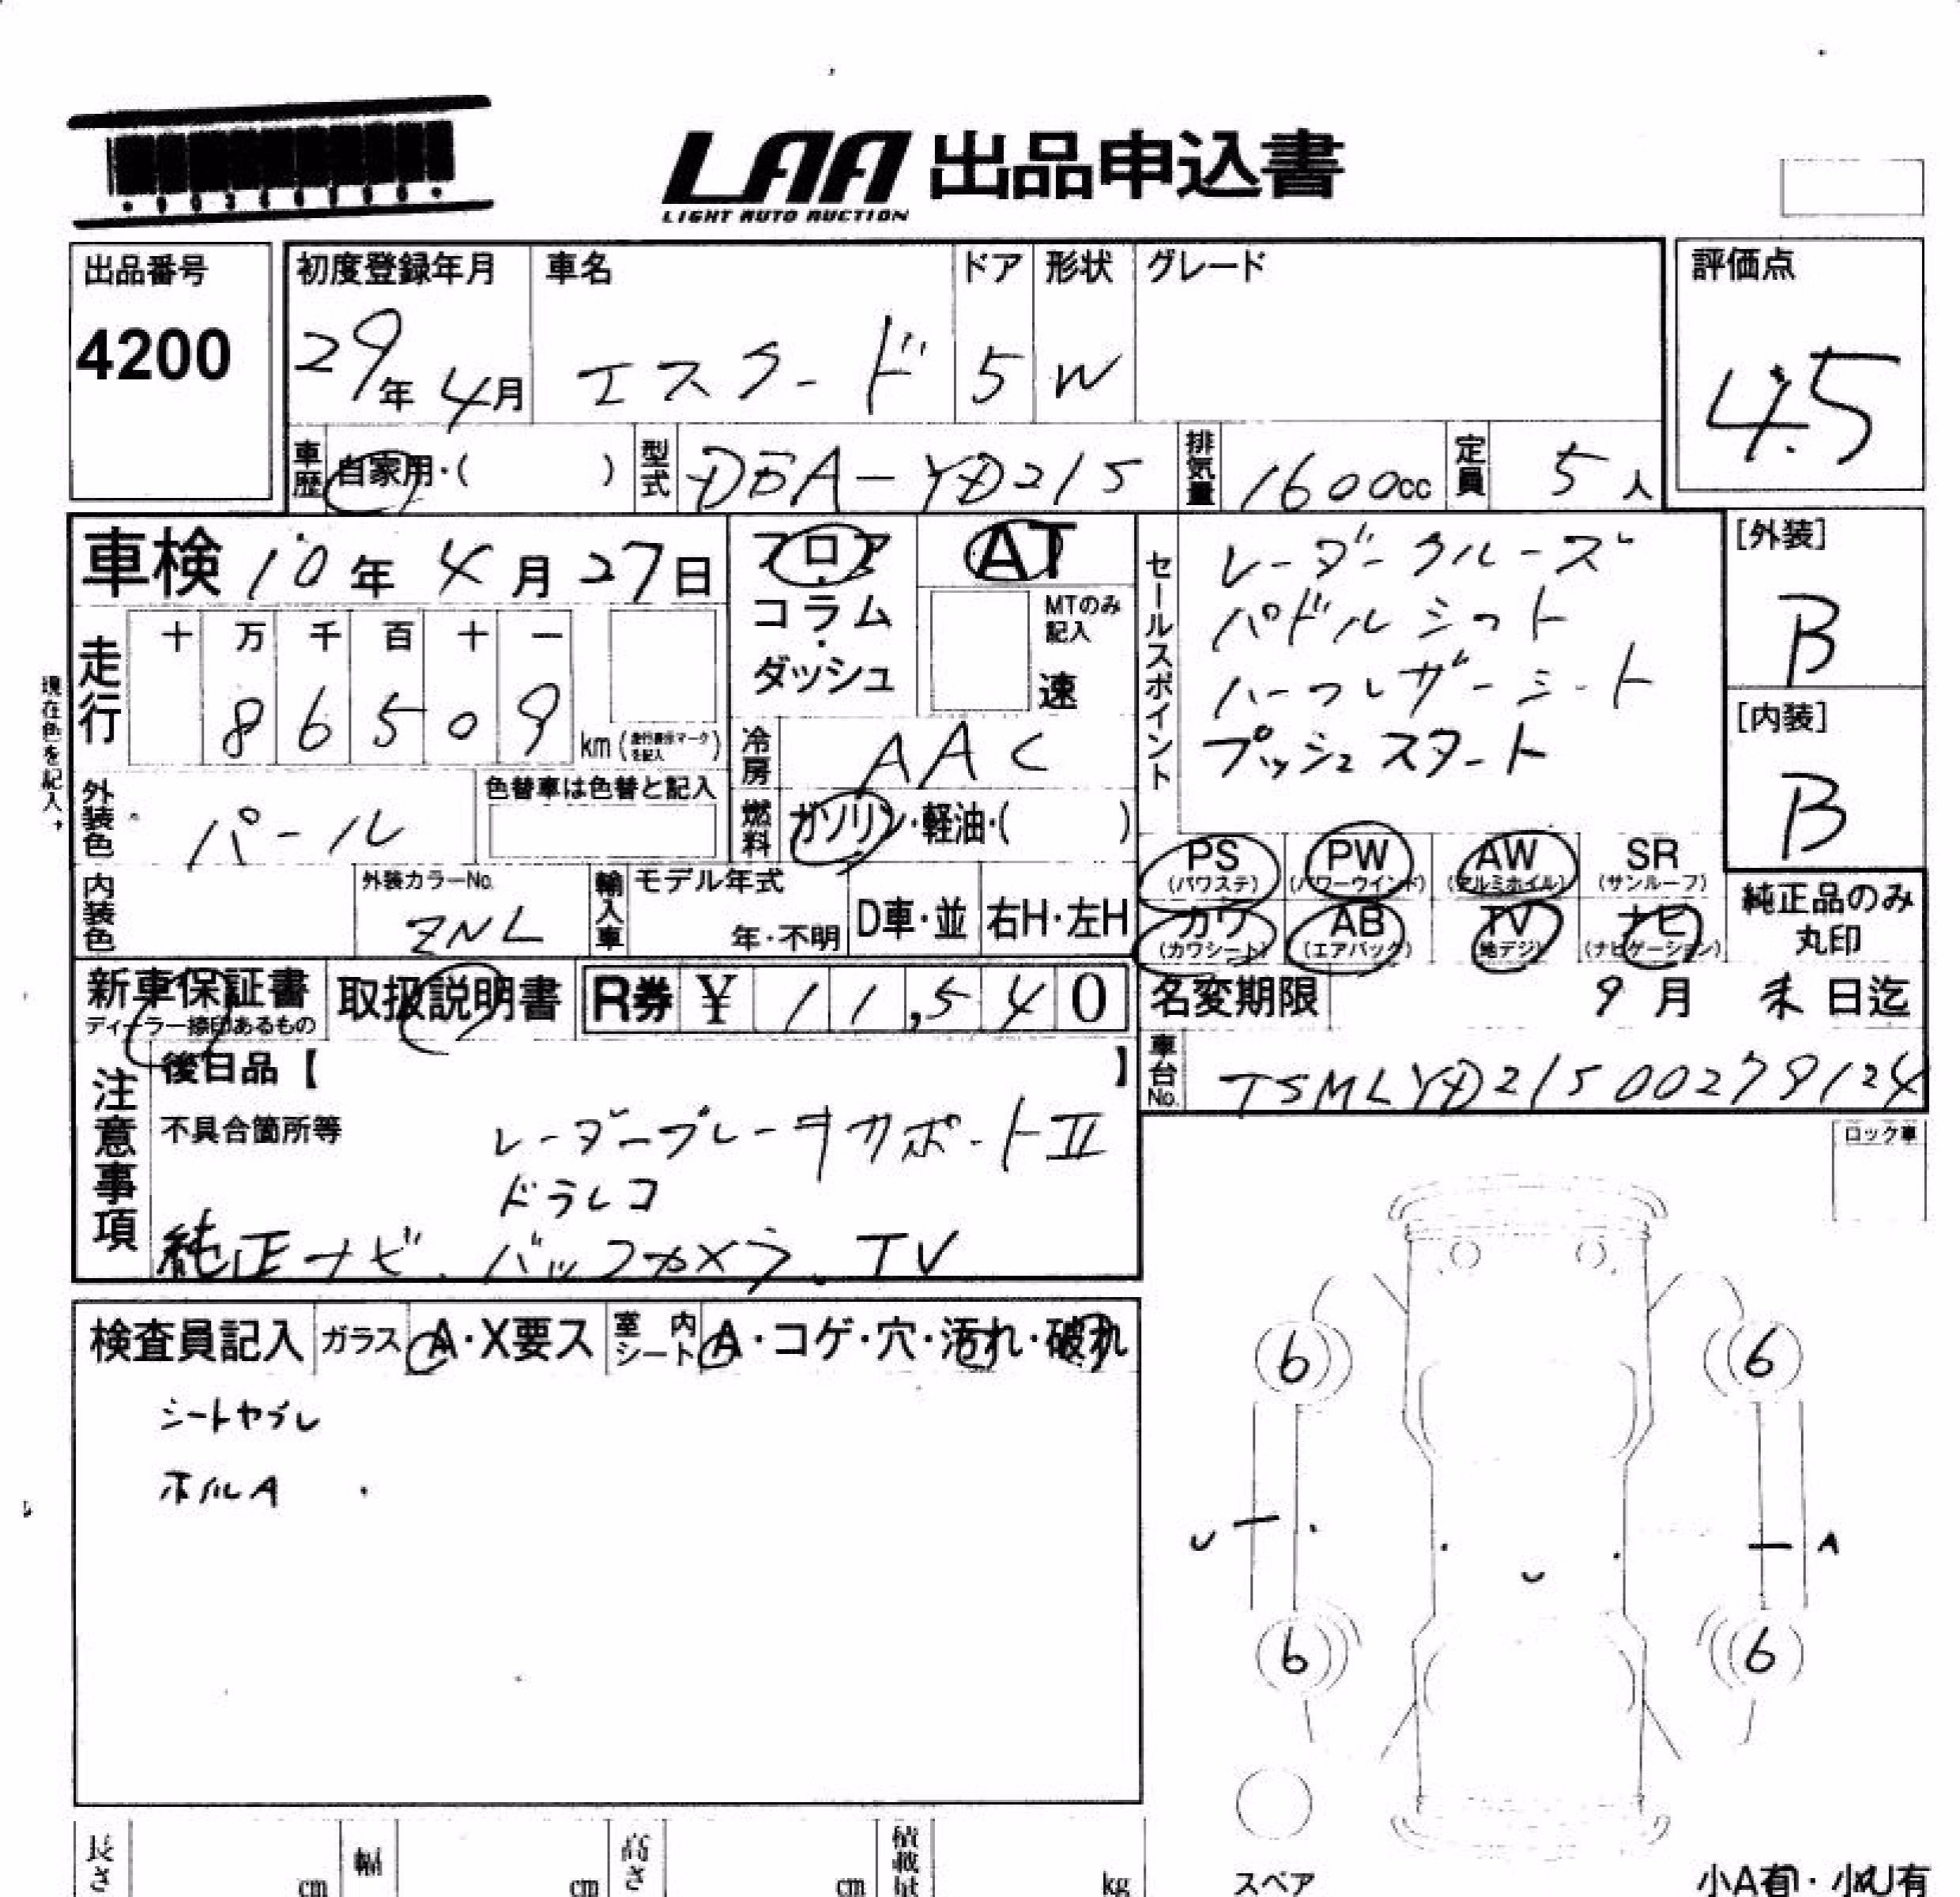 LAA 出品申込書
LIGHT AUTO AUCTION
出品番号
4200
初度登録年月
29年 4月
車名
エスクード
ドア
5
形状
W
グレード
評価点
4.5
車歴
自家用・( )
型式
DBA-YD21S
排気量
1600cc
定員
5人
車検 10年 4月 27日
フロア・コラム・ダッシュ
AT
MTのみ記入
速
走行
十 万 千 百 十 一
8 6 5 0 9
km (走行表示マークを記入)
現在色を記入→
外装色
パール
色替車は色替と記入
冷房
AAC
燃料
ガソリン・軽油・( )
内装色
外装カラーNo.
ZNL
輸入車
モデル年式
年・不明
D車・並
右H・左H
セールスポイント
レーダークルーズ
パドルシフト
ハーフレザーシート
プッシュスタート
[外装]
B
[内装]
B
PS (パワステ)
PW (パワーウインド)
AW (アルミホイル)
SR (サンルーフ)
カワ (カワシート)
AB (エアバック)
TV (地デジ)
ナビ (ナビゲーション)
純正品のみ丸印
新車保証書
ディーラー捺印あるもの
取扱説明書
R券 ¥ 11,540
名変期限 9月 末日迄
車台No.
TSMLYD21S00279124
注意事項
後日品【 】
不具合箇所等
レーダーブレーキサポートⅡ
ドラレコ
純正ナビ、バックカメラ、TV
ロック車
検査員記入
ガラス A・X要ス
室内シート A・コゲ・穴・汚れ・破れ
シートヤブレ
ホイルA
6
6
U
A
U
6
6
スペア
長さ cm
幅 cm
高さ cm
積載量 kg
小A有・小U有